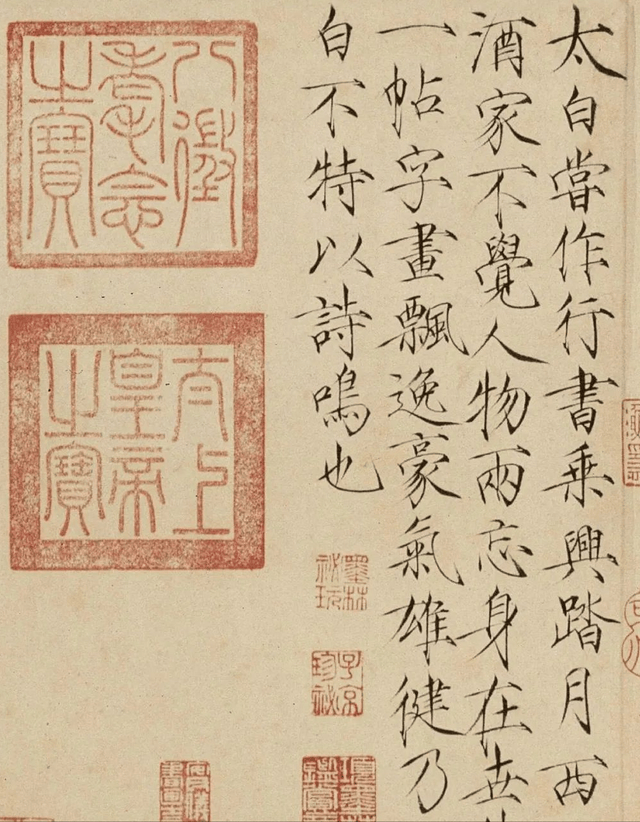 太白嘗作行書乘興踏月西
酒家不覺人物兩忘身在世
一帖字畫飄逸豪氣雄健乃
白不特以詩鳴也
墨林
祕玩
子京
珍祕
八徵
耄念
之寶
太上
皇帝
之寶